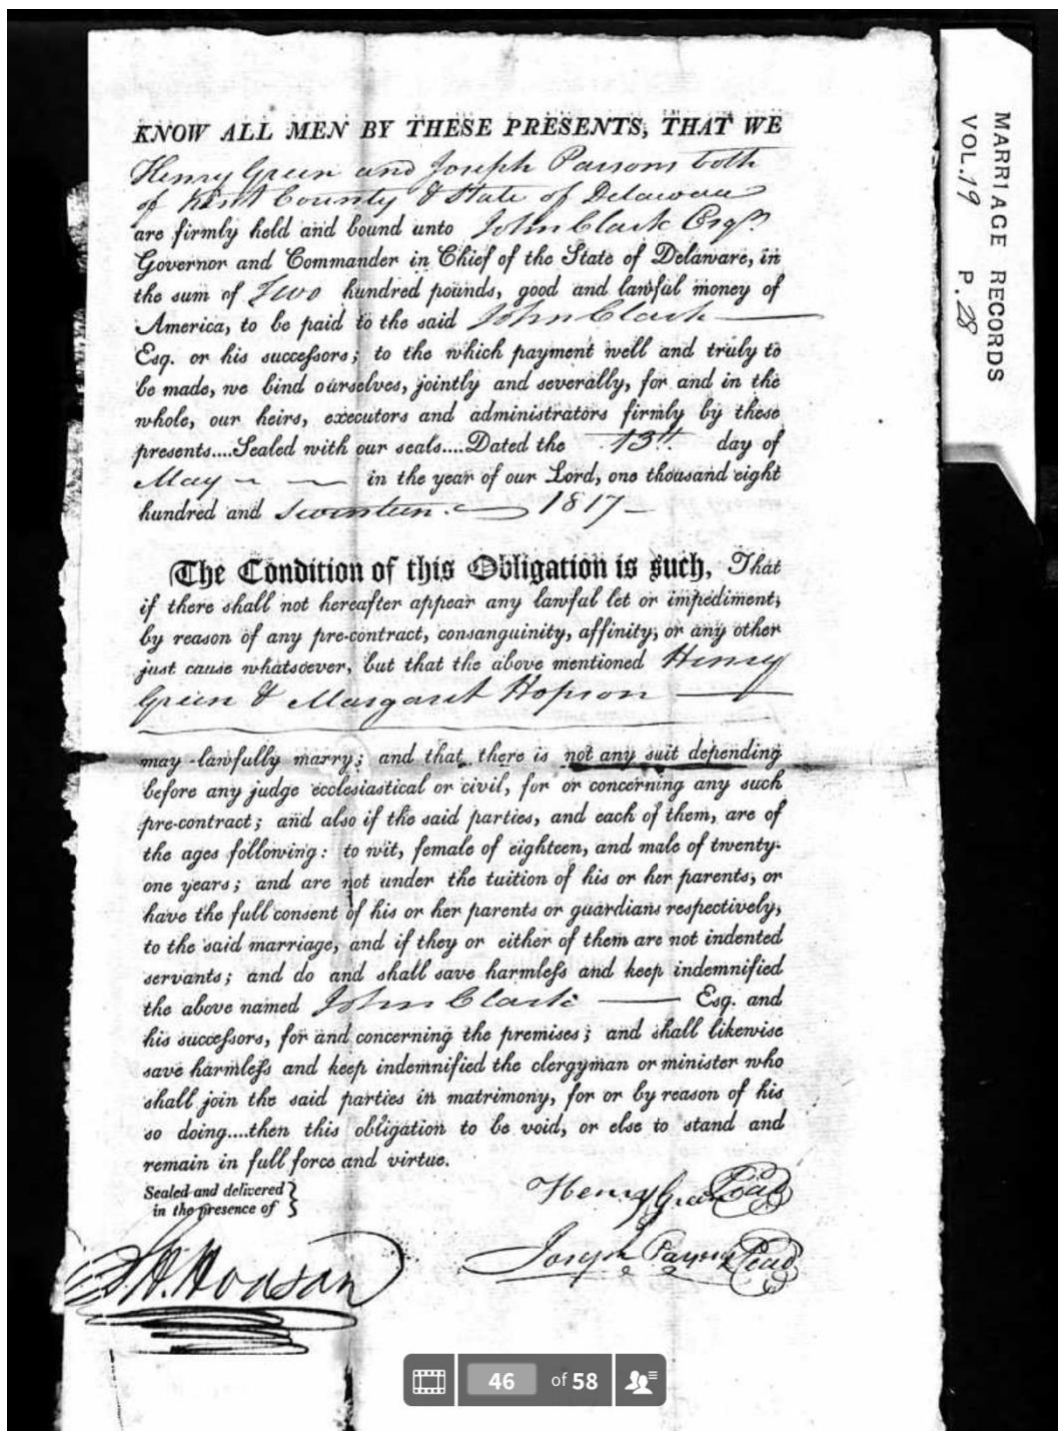 KNOW ALL MEN BY THESE PRESENTS, THAT WE
Henry Green and Joseph Parsons both
of Kent County & State of Delaware
are firmly held and bound unto John Clark Esqr.
Governor and Commander in Chief of the State of Delaware, in
the sum of Two hundred pounds, good and lawful money of
America, to be paid to the said John Clark
Esq. or his successors; to the which payment well and truly to
be made, we bind ourselves, jointly and severally, for and in the
whole, our heirs, executors and administrators firmly by these
presents....Sealed with our seals....Dated the 13th day of
May in the year of our Lord, one thousand eight
hundred and seventeen. 1817
The Condition of this Obligation is such, That
if there shall not hereafter appear any lawful let or impediment,
by reason of any pre-contract, consanguinity, affinity, or any other
just cause whatsoever, but that the above mentioned Henry
Green & Margaret Hopson
may lawfully marry; and that there is not any suit depending
before any judge ecclesiastical or civil, for or concerning any such
pre-contract; and also if the said parties, and each of them, are of
the ages following: to wit, female of eighteen, and male of twenty-
one years; and are not under the tuition of his or her parents, or
have the full consent of his or her parents or guardians respectively,
to the said marriage, and if they or either of them are not indented
servants; and do and shall save harmless and keep indemnified
the above named John Clark Esq. and
his successors, for and concerning the premises; and shall likewise
save harmless and keep indemnified the clergyman or minister who
shall join the said parties in matrimony, for or by reason of his
so doing....then this obligation to be void, or else to stand and
remain in full force and virtue.
Sealed and delivered
in the presence of
Henry Green Seal
Joseph Parsons Seal
MARRIAGE RECORDS
VOL. 19 P. 28
46 of 58